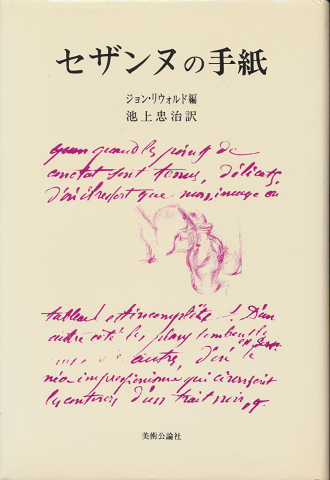 セザンヌの手紙
ジョン・リウォルド編
池上忠治訳
quand les points de
contact sont tenus, délicats,
d'où il ressort que mon image ou
tableau est incomplète. D'un
autre côté les plans tombent les
autres, d'où le
néo-impressionisme qui circonscrit
les contours d'un trait noir,
美術公論社